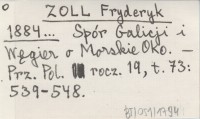 ZOLL Fryderyk
1884... Spór Galicji i
Węgier o Morskie Oko. —
Prz. Pol. rocz. 19, t. 73:
539-548.